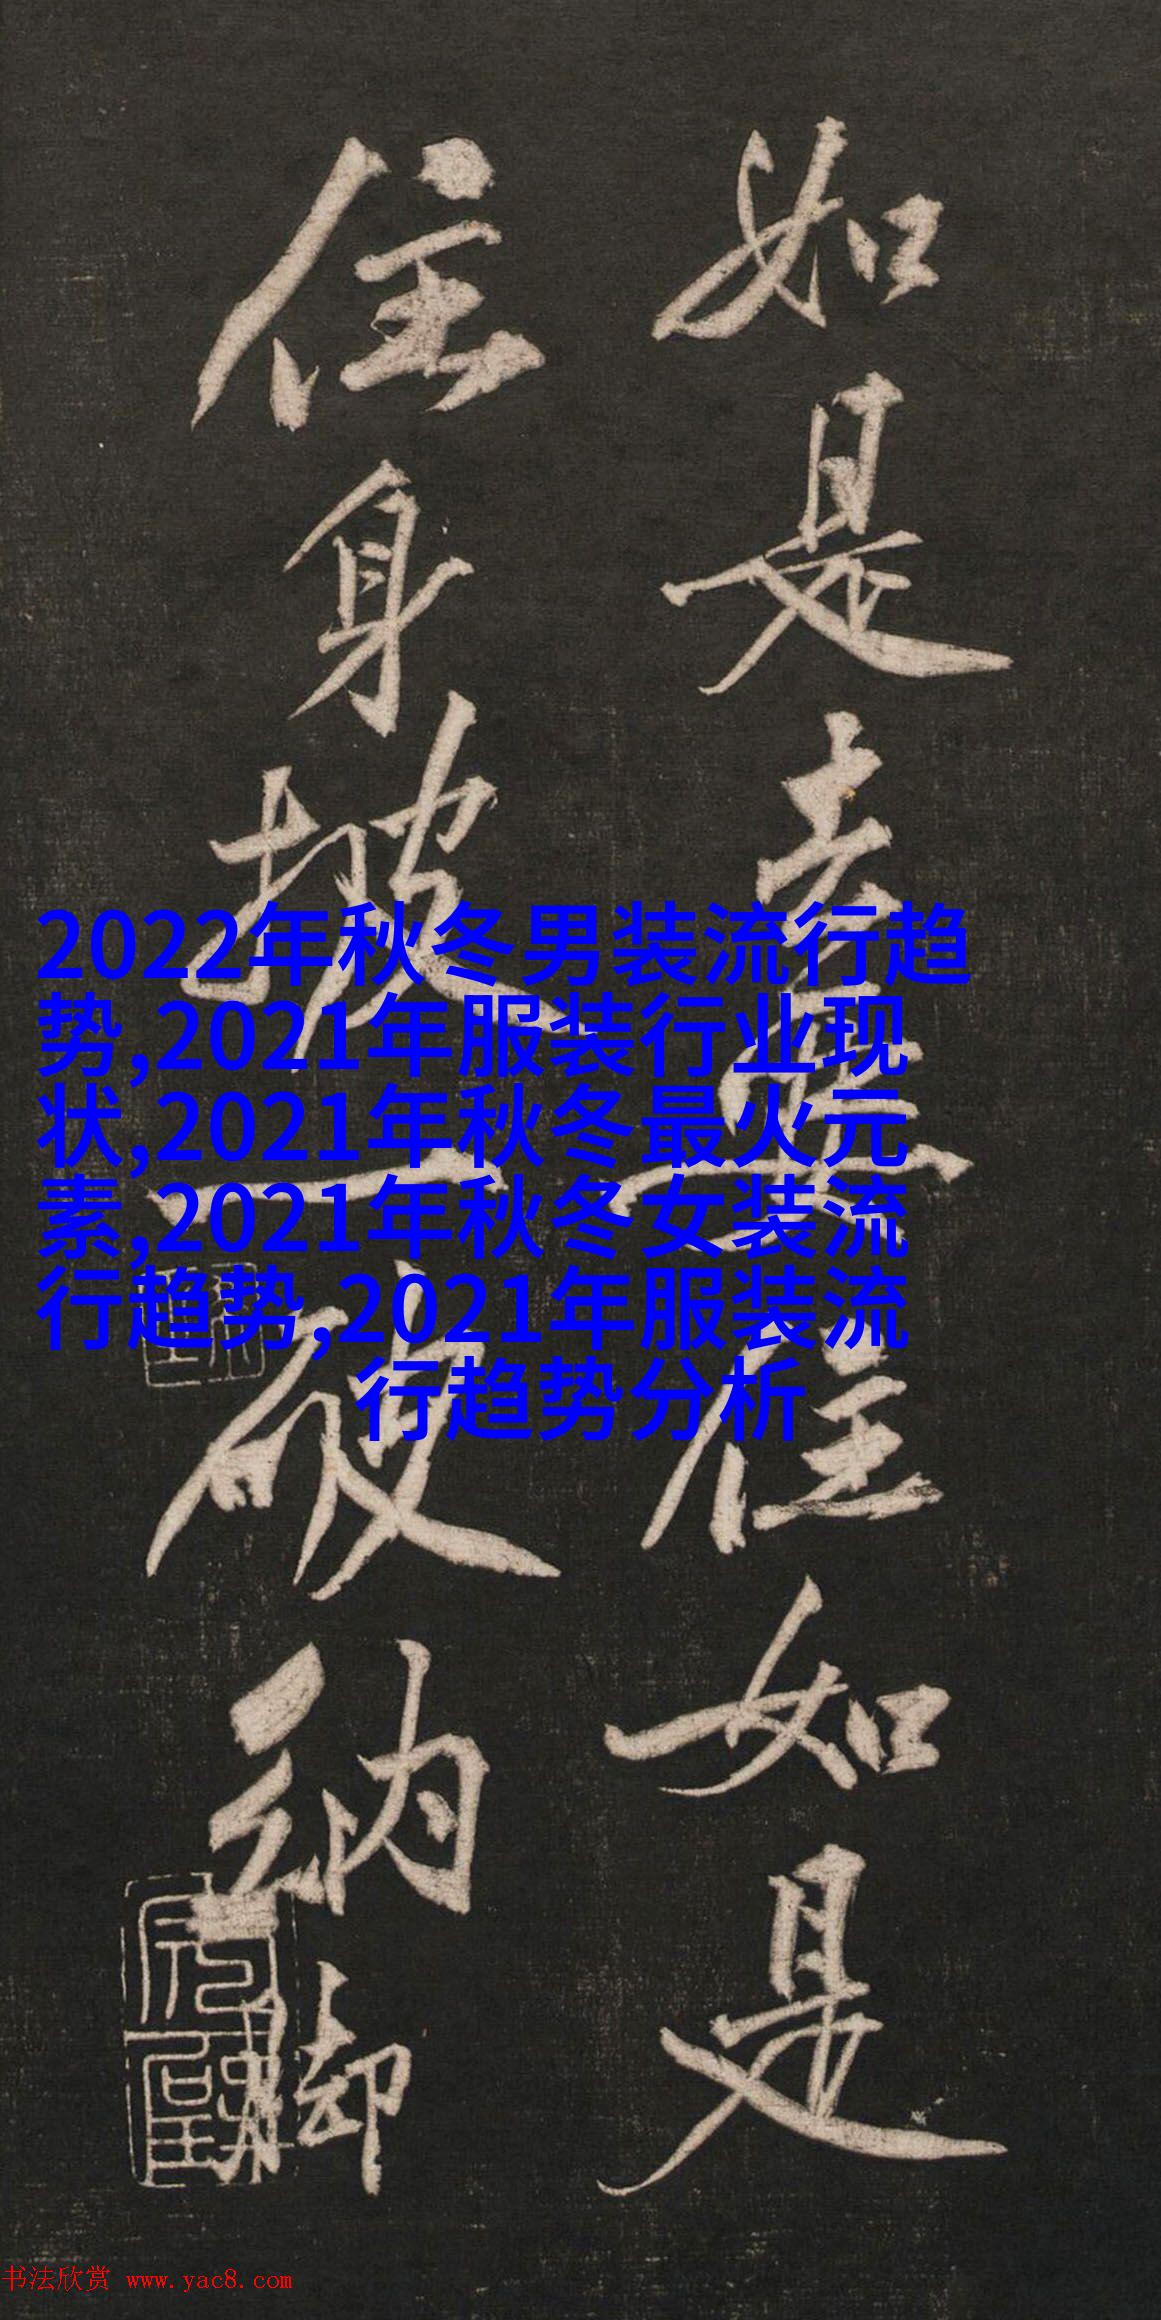 如是去無住如是
住身披一破納脚
2022年秋冬男装流行趋
势,2021年服装行业现
状,2021年秋冬最火元
素,2021年秋冬女装流
行趋势,2021年服装流
行趋势分析
书法欣赏 www.yac8.com